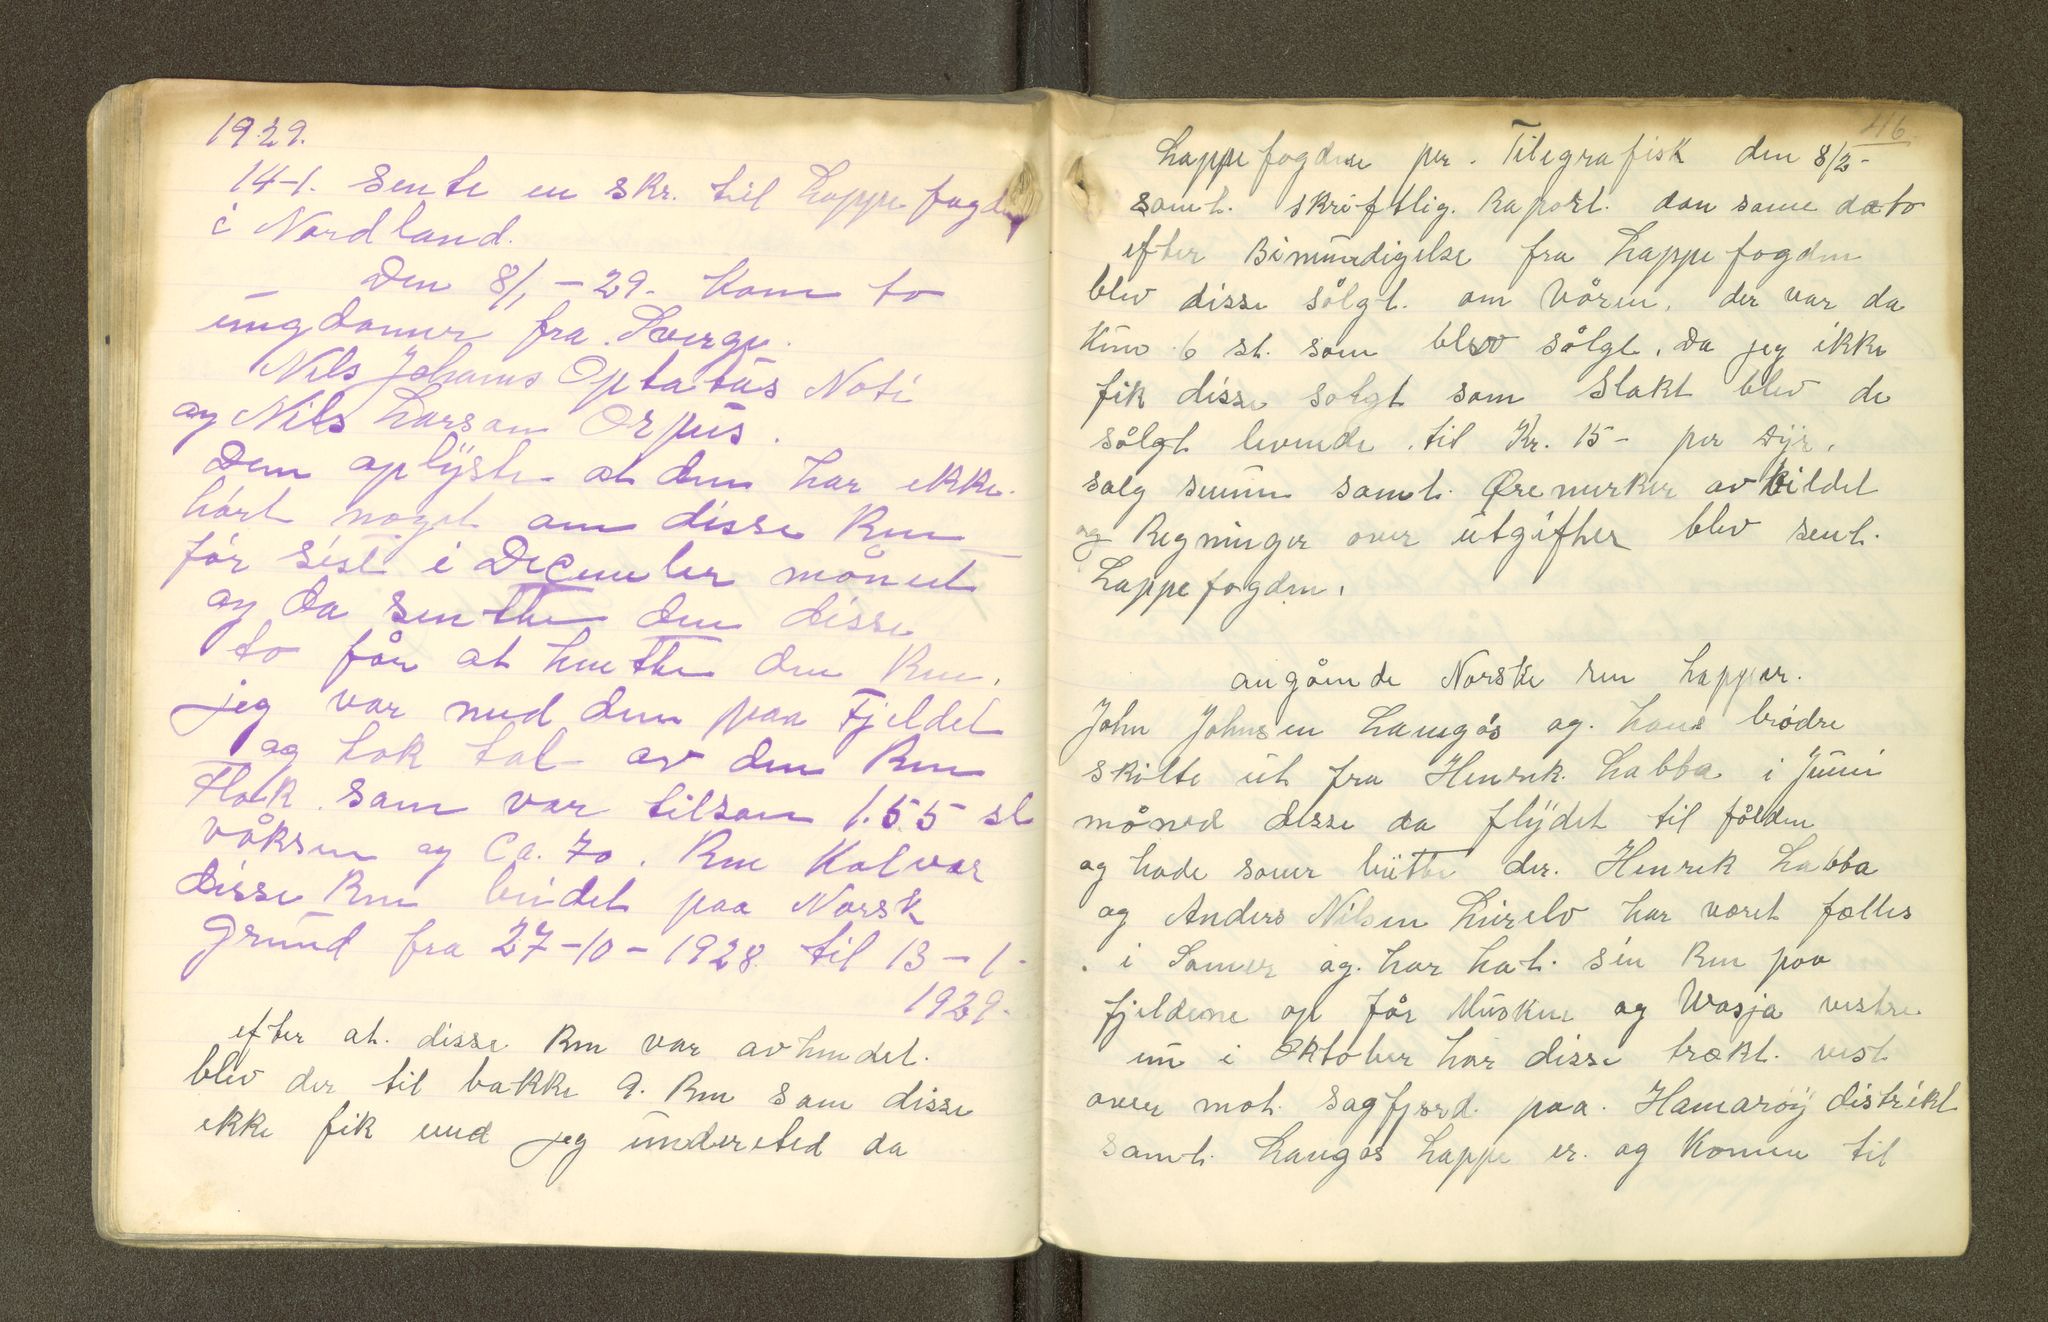 1929.
14-1. sente en skr. til Lappefogden
i Nordland.
Den 8/1-29. Kom to
ungdomer fra Sverge.
Nils Johans Optatus Noti
og Nils Larsom Orpus.
Dem oplyste at dem har ikke.
hørt noget om disse Ren
før sist i Decemeber månet
og da sentte dem disse
to får at hentte dem Ren.
jeg var med dem paa Fjeldet
og tok tal av dem Ren
Flok. som var tilsam 155 st
våksen og Ca. 70. Ren Kalvar
disse Ren beidet paa Norsk
grund fra 27-10-1928 til 13-1-
1929.
efter at. disse Ren var avhendet.
blev der til bakke 9. Ren som disse
ikke fik med jeg undereted da
46.
Lappefogden per. Telegrafisk den 8/2-
samt. skriftlig. Raport. dan same dato
efter Bemundigelse fra Lappefogden
blev disse sålgt. om Våren. der var da
Kun 6 st. som blev sålgt. Da jeg ikke
fik disse solgt som Slakt blev de
sålgt levende. til Kr. 15- per Dyr.
salg sumen samt. Øremerker avbildet
og Regninger over utgifter blev sent.
Lappefogden.
angående Norske ren Lapper.
John Johnsen Langås og. hans brødre
skilte ut fra Henrik. Labba i Juni
måned disse da flydet til fålden
og hade somer hütte der. Henrik Labba
og Anders Nilsen Lurelv har været fælles
i Somer og. har hat. sin Ren paa
fjeldene op får Musken og Wasja vestre
nu i Oktober har disse trækt. vest
over mot. Sagfjord. paa. Hamarøy distrikt
samt. Langås Lappe er. og Komen til